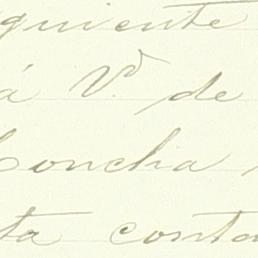 quiente
á V.d de
Concha
ta conta